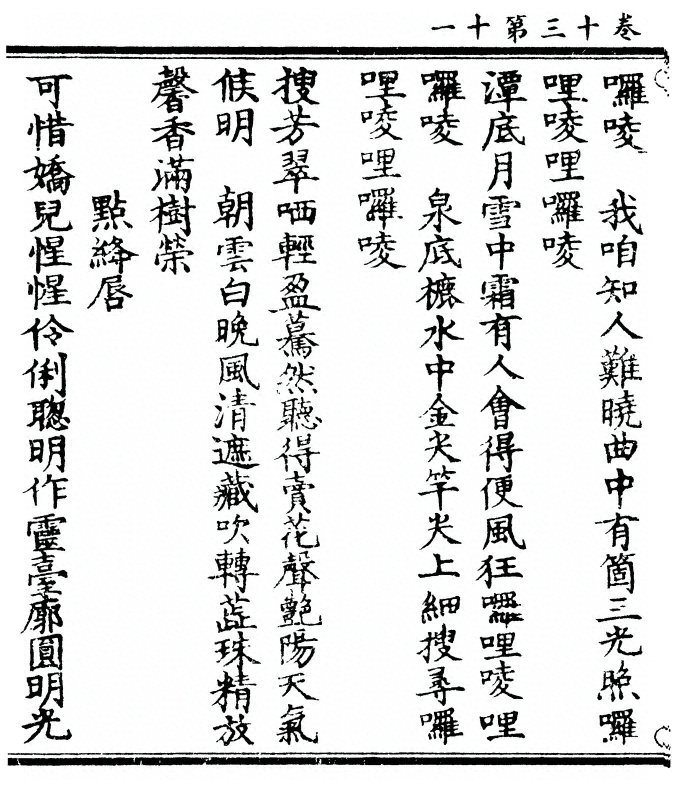 卷十三第十一
囉唛　我咱知人難曉曲中有箇三光照囉
哩唛哩囉唛
潭底月雪中霜有人會得便風狂囉哩唛哩
囉唛　泉底槺水中金尖竿尖上細搜尋囉
哩唛哩囉唛
搜芳翠哂輕盈驀然聽得賣花聲艶陽天氣
候明　朝雲白晚風清遮藏吹轉蕋珠精放
馨香滿樹榮
點絳唇
可惜嬌兒惺惺伶俐聰明作靈臺廓圓明光